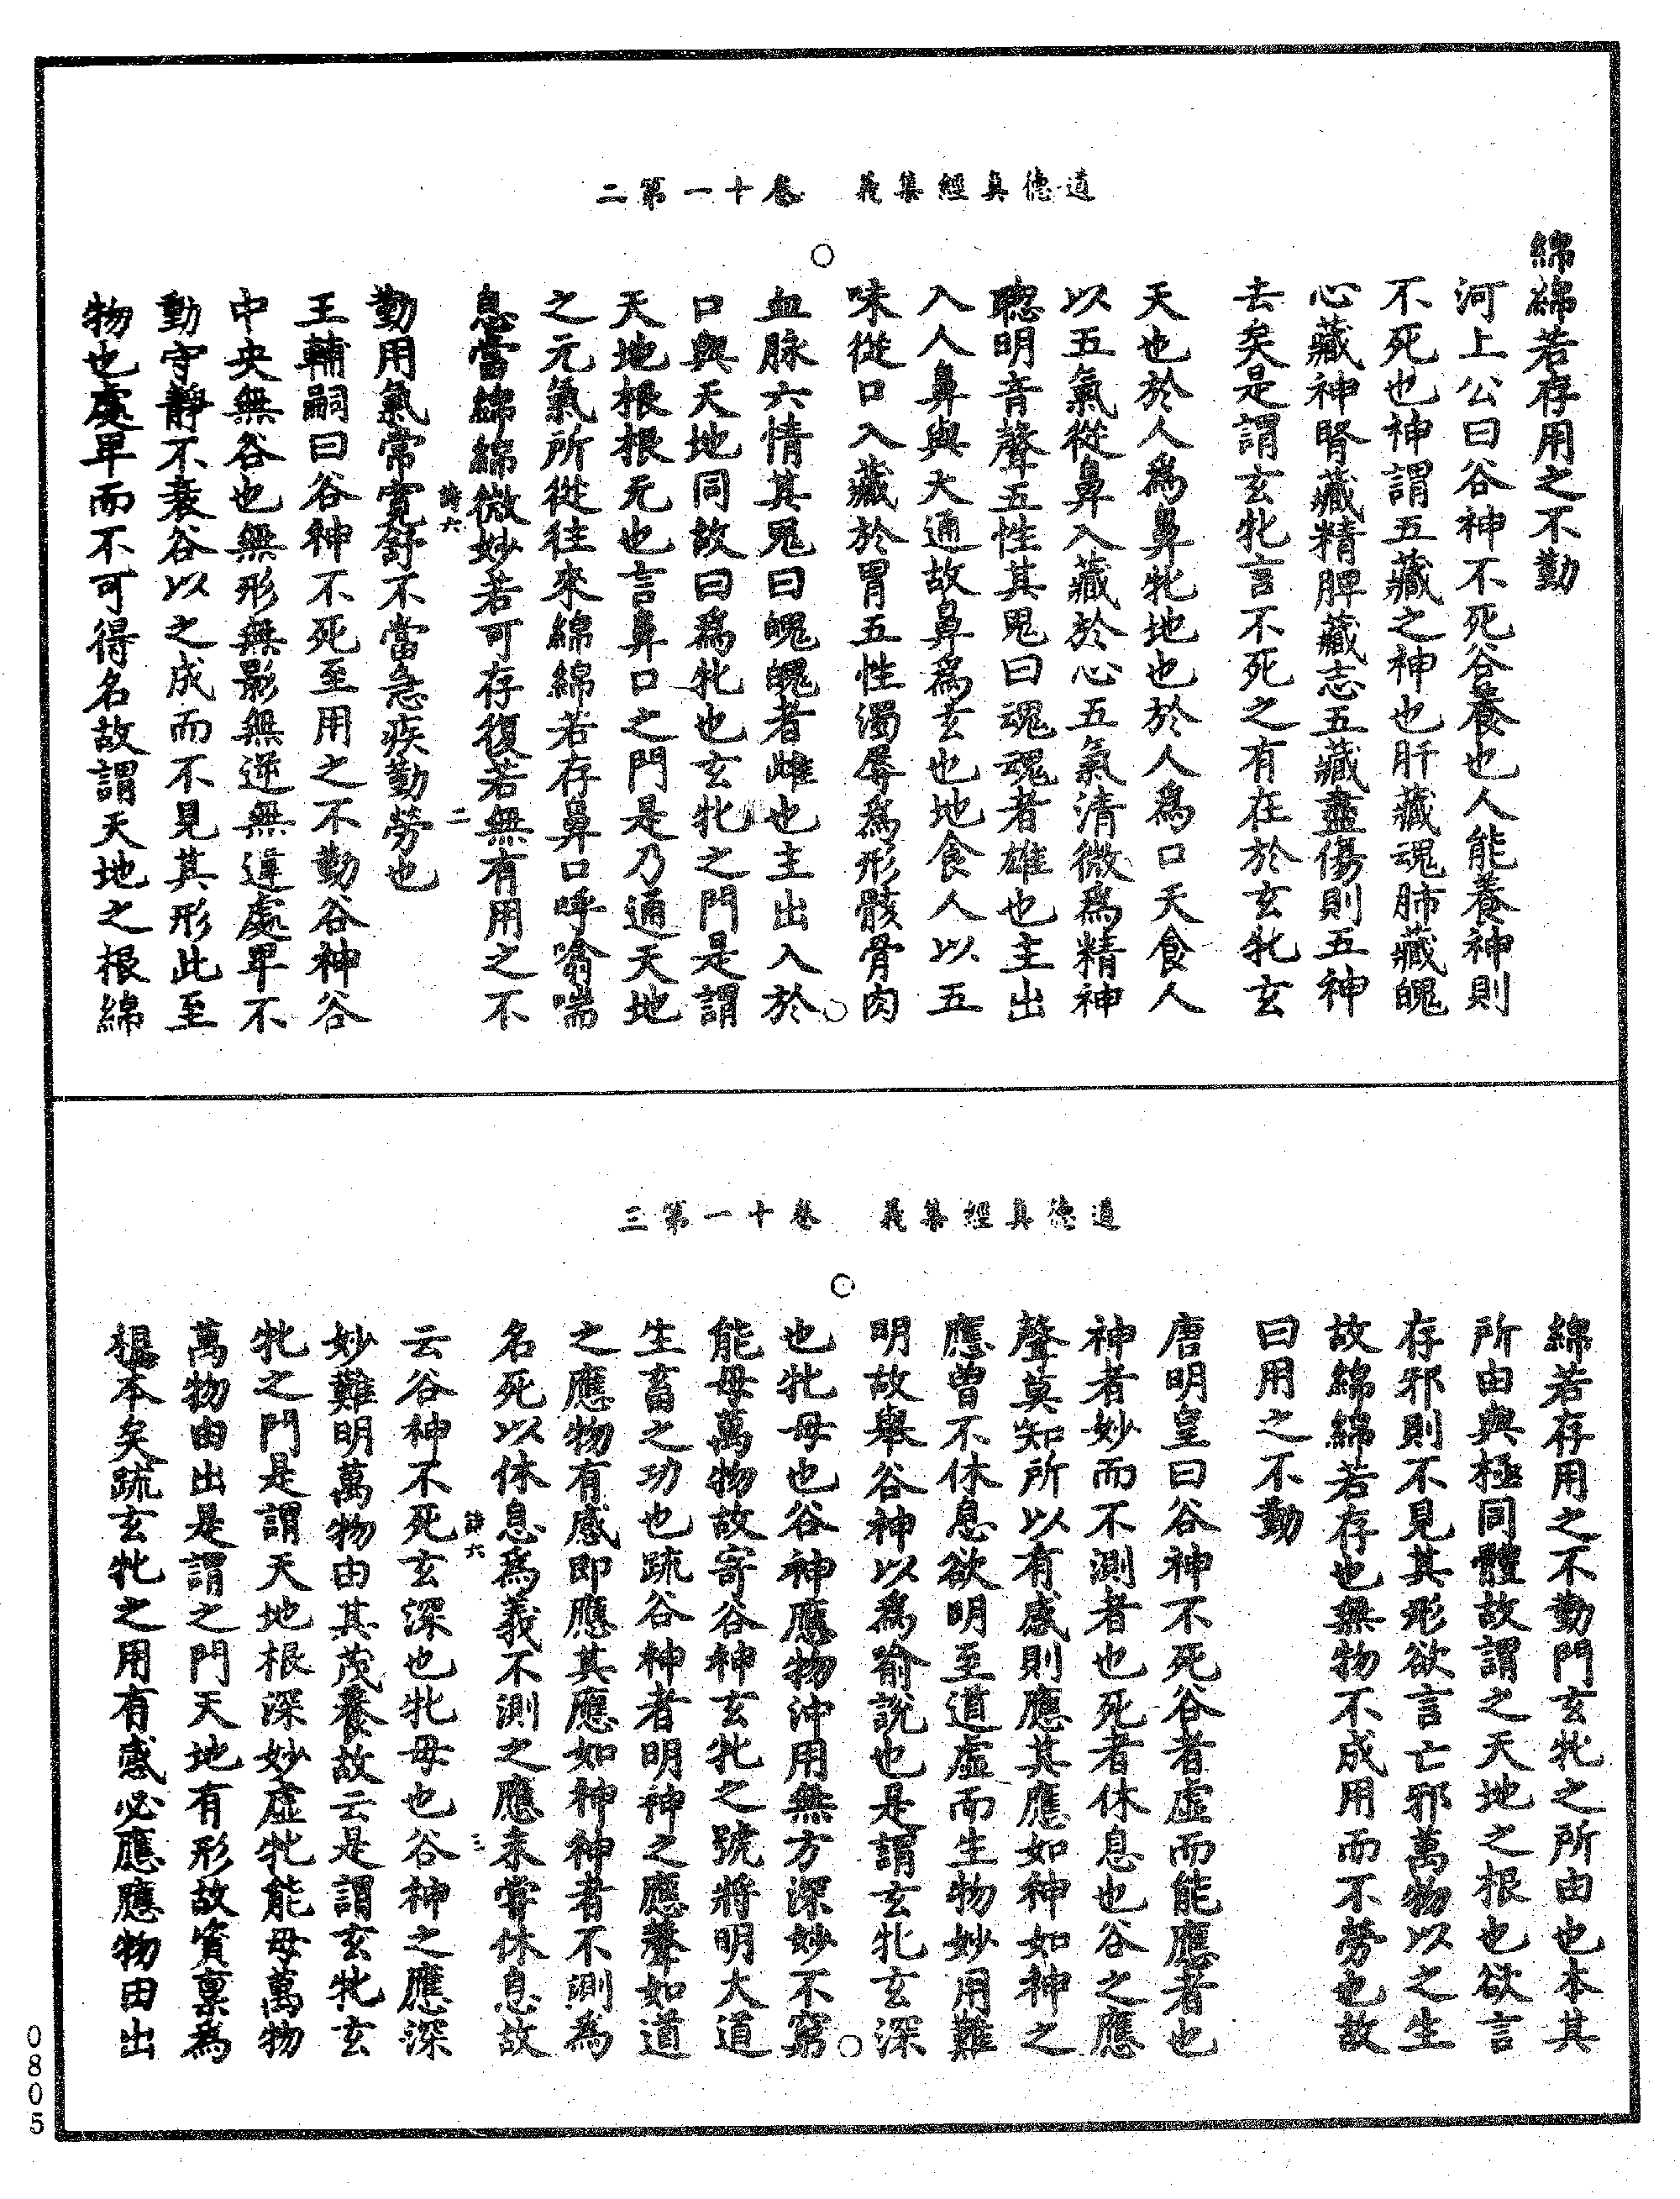 道德真經集義　卷十一第二
綿綿若存用之不勤
河上公曰谷神不死谷養也人能養神則
不死也神謂五藏之神也肝藏魂肺藏魄
心藏神腎藏精脾藏志五藏盡傷則五神
去矣是謂玄牝言不死之有在於玄牝玄
天也於人爲鼻牝地也於人爲口天食人
以五氣從鼻入藏於心五氣清微爲精神
聰明音聲五性其鬼曰魂魂者雄也主出
入人鼻與天通故鼻爲玄也地食人以五
味從口入藏於胃五性濁辱爲形骸骨肉
血脉六情其鬼曰魄魄者雌也主出入於
口與天地同故曰爲牝也玄牝之門是謂
天地根根元也言鼻口之門是乃通天地
之元氣所從往來綿綿若存鼻口呼噏喘
息當綿綿微妙若可存復若無有用之不
詩六　二
勤用氣常寬舒不當急疾勤勞也
王輔嗣曰谷神不死至用之不勤谷神谷
中央無谷也無形無影無逆無違處卑不
動守靜不衰谷以之成而不見其形此至
物也處卑而不可得名故謂天地之根綿
道德真經集義　卷十一第三
綿若存用之不勤門玄牝之所由也本其
所由與極同體故謂之天地之根也欲言
存邪則不見其形欲言亡邪萬物以之生
故綿綿若存也無物不成用而不勞也故
曰用之不勤
唐明皇曰谷神不死谷者虛而能應者也
神者妙而不測者也死者休息也谷之應
聲莫知所以有感則應其應如神如神之
應曾不休息欲明至道虛而生物妙用難
明故舉谷神以爲喻說也是謂玄牝玄深
也牝母也谷神應物沖用無方深妙不窮
能母萬物故寄谷神玄牝之號將明大道
生畜之功也疏谷神者明神之應聲如道
之應物有感即應其應如神神者不測爲
名死以休息爲義不測之應未嘗休息故
詩六　三
云谷神不死玄深也牝母也谷神之應深
妙難明萬物由其茂養故云是謂玄牝玄
牝之門是謂天地根深妙虛牝能母萬物
萬物由出是謂之門天地有形故資稟爲
根本矣疏玄牝之用有感必應應物由出
0805